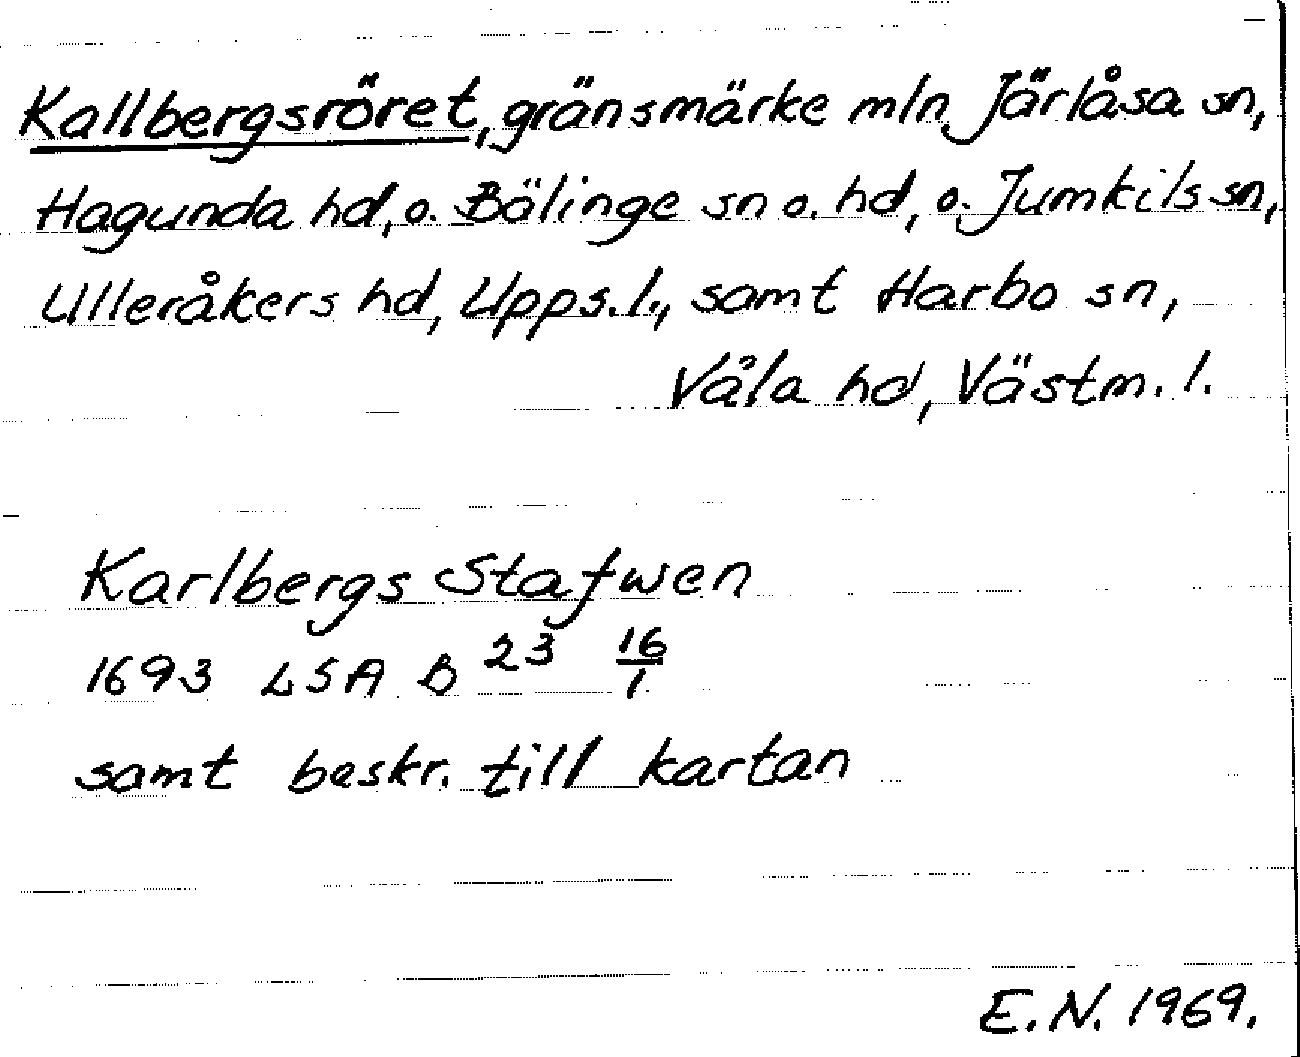 Kallbergsröret, gränsmärke mln Järlåsa sn,
Hagunda hd, o. Bälinge sn o. hd, o. Jumkils sn,
Ulleråkers hd, Upps. l., samt Harbo sn,
Våla hd, Västm. l.
Karlbergs Stafwen
1693 LSA B 23 16/1
samt beskr. till kartan
E. N. 1969.